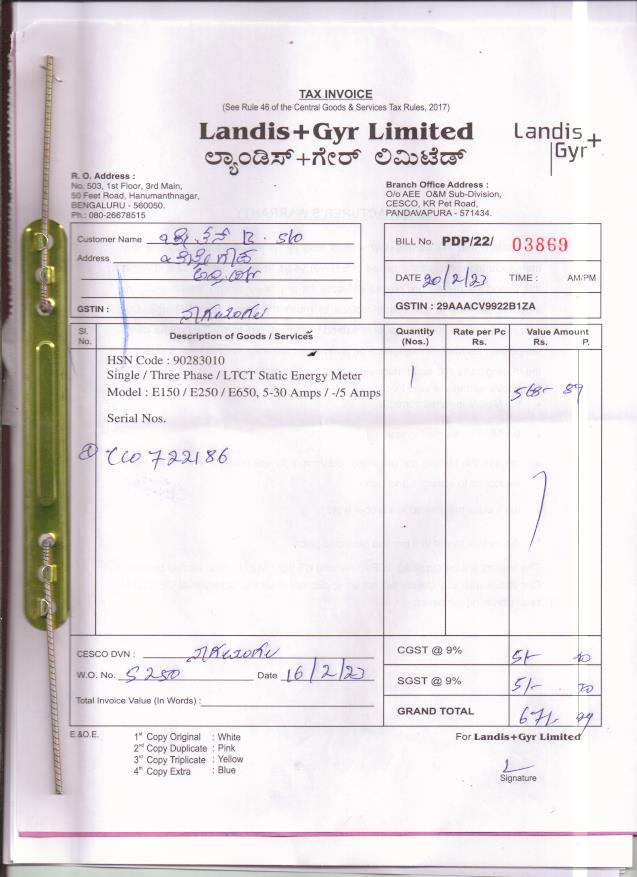 TAX INVOICE
(See Rule 46 of the Central Goods & Services Tax Rules, 2017)
Landis+Gyr Limited
ಲ್ಯಾಂಡಿಸ್+ಗೇರ್ ಲಿಮಿಟೆಡ್
Landis+
Gyr
R. O. Address :
No. 503, 1st Floor, 3rd Main,
50 Feet Road, Hanumanthnagar,
BENGALURU - 560050.
Ph.: 080-26678515
Branch Office Address :
O/o AEE O&M Sub-Division,
CESCO, KR Pet Road,
PANDAVAPURA - 571434.
Customer Name
Address
GSTIN :
BILL No. PDP/22/ 03869
DATE 20/2/23 TIME : AM/PM
GSTIN : 29AAACV9922B1ZA
Sl. No. Description of Goods / Services Quantity (Nos.) Rate per Pc Rs. Value Amount Rs. P.
HSN Code : 90283010
Single / Three Phase / LTCT Static Energy Meter 1
Model : E150 / E250 / E650, 5-30 Amps / -/5 Amps 568- 89
Serial Nos.
722186
CESCO DVN :
W.O. No. S250 Date 16/2/23
Total Invoice Value (In Words) :
CGST @ 9% 51-
SGST @ 9% 51-
GRAND TOTAL 671-
E.&O.E.
1st Copy Original : White
2nd Copy Duplicate : Pink
3rd Copy Triplicate : Yellow
4th Copy Extra : Blue
For Landis+Gyr Limited
Signature